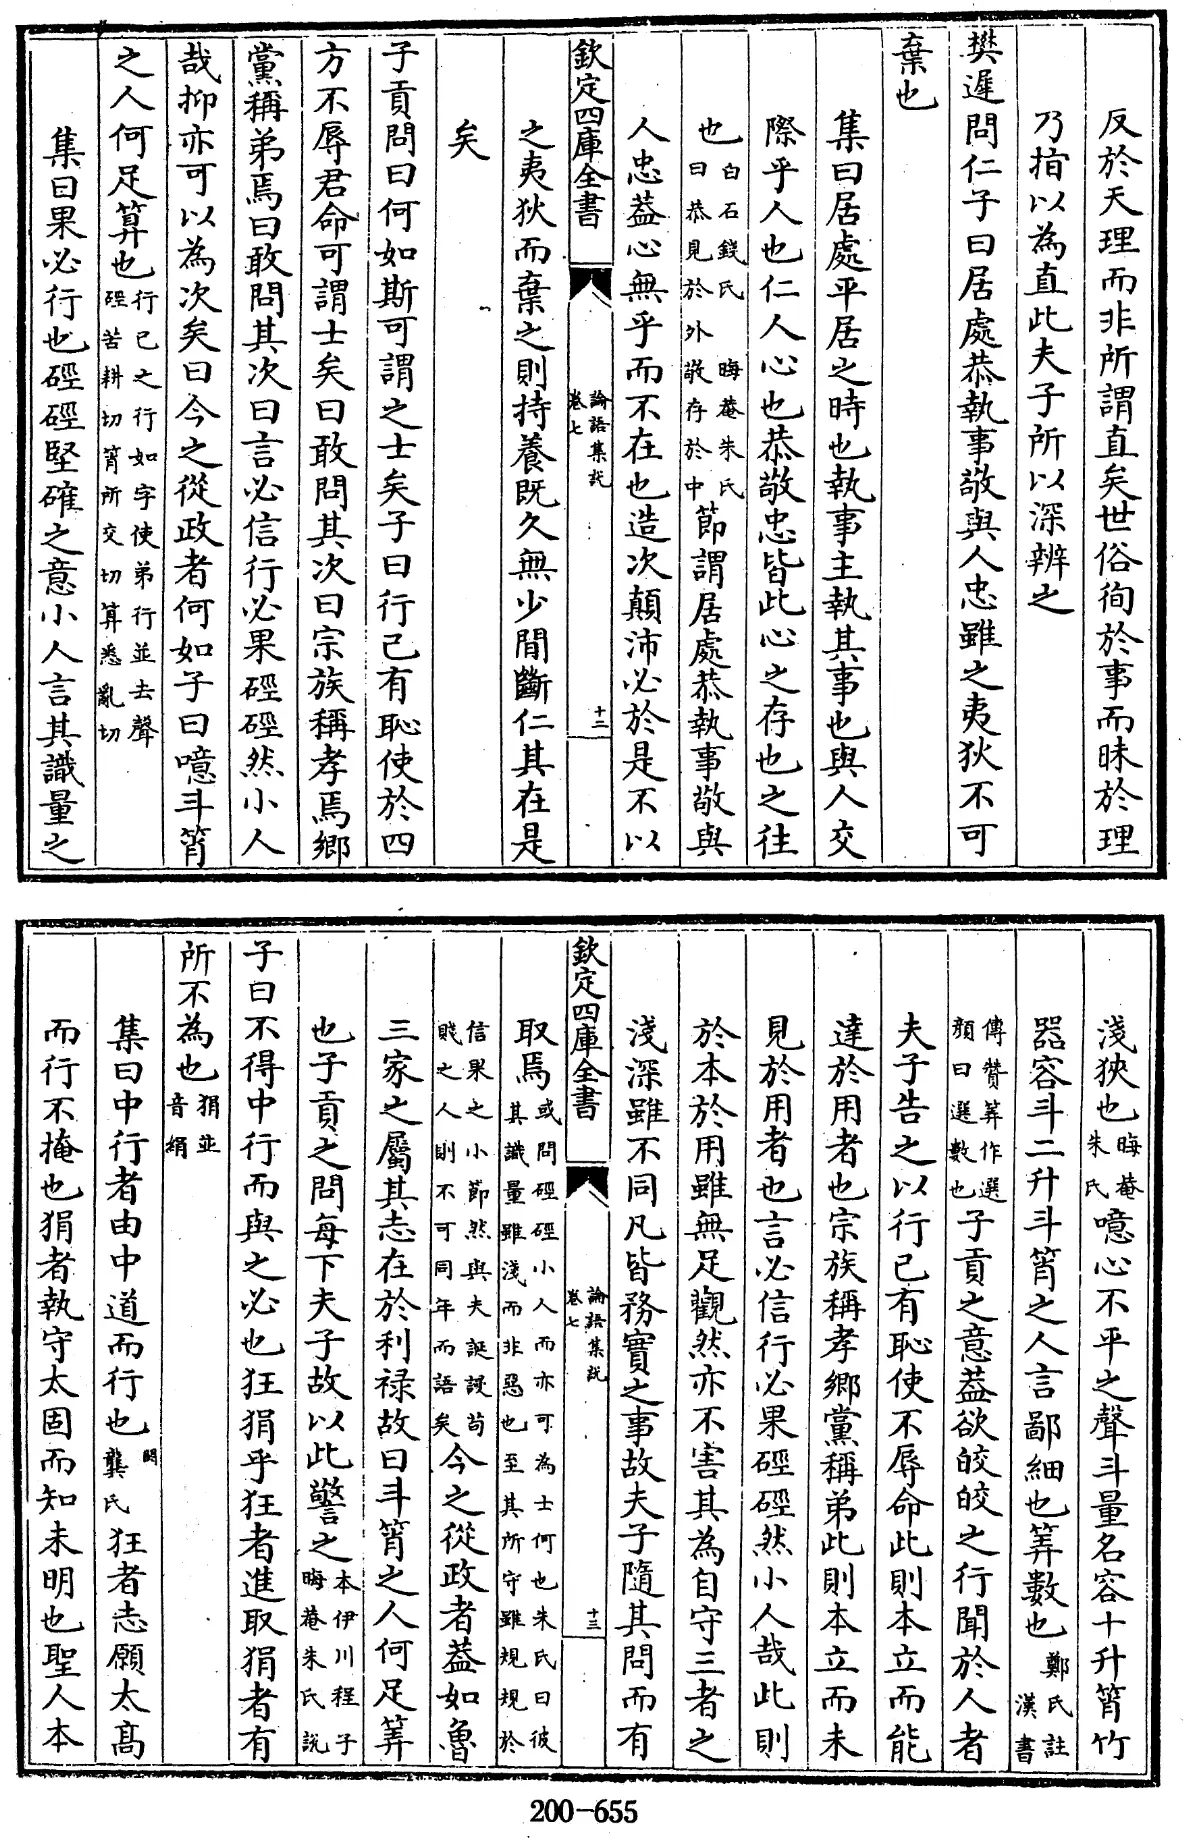 反於天理而非所謂直矣世俗徇於事而昧於理
乃指以為直此夫子所以深辨之
樊遲問仁子曰居處恭執事敬與人忠雖之夷狄不可
棄也
集曰居處平居之時也執事主執其事也與人交
際乎人也仁人心也恭敬忠皆此心之存也之往
也白石錢氏曰恭見於外敬存於中晦菴朱氏節謂居處恭執事敬與
人忠葢心無乎而不在也造次顛沛必於是不以
欽定四庫全書
論語集説
卷七
十二
之夷狄而棄之則持養既久無少間斷仁其在是
矣
子貢問曰何如斯可謂之士矣子曰行己有恥使於四
方不辱君命可謂士矣曰敢問其次曰宗族稱孝焉鄉
黨稱弟焉曰敢問其次曰言必信行必果硜硜然小人
哉抑亦可以為次矣曰今之從政者何如子曰噫斗筲
之人何足算也行己之行如字使弟行並去聲硜苦耕切筲所交切算悉亂切
集曰果必行也硜硜堅確之意小人言其識量之
淺狹也晦菴朱氏噫心不平之聲斗量名容十升筲竹
器容斗二升斗筲之人言鄙細也筭數也鄭氏註漢書
傳贊筭作選顔曰選數也子貢之意葢欲皎皎之行聞於人者
夫子告之以行己有恥使不辱命此則本立而能
達於用者也宗族稱孝鄉黨稱弟此則本立而未
見於用者也言必信行必果硜硜然小人哉此則
於本於用雖無足觀然亦不害其為自守三者之
淺深雖不同凡皆務實之事故夫子隨其問而有
欽定四庫全書
論語集説
卷七
十三
取焉或問硜硜小人而亦可為士何也朱氏曰彼其識量雖淺而非惡也至其所守雖規規於
信果之小節然與夫誕謾苟賤之人則不可同年而語矣今之從政者葢如魯
三家之屬其志在於利祿故曰斗筲之人何足筭
也子貢之問每下夫子故以此警之本伊川程子晦菴朱氏説
子曰不得中行而與之必也狂狷乎狂者進取狷者有
所不為也狷並音絹
集曰中行者由中道而行也閎龔氏狂者志願太髙
而行不掩也狷者執守太固而知未明也聖人本
200-655